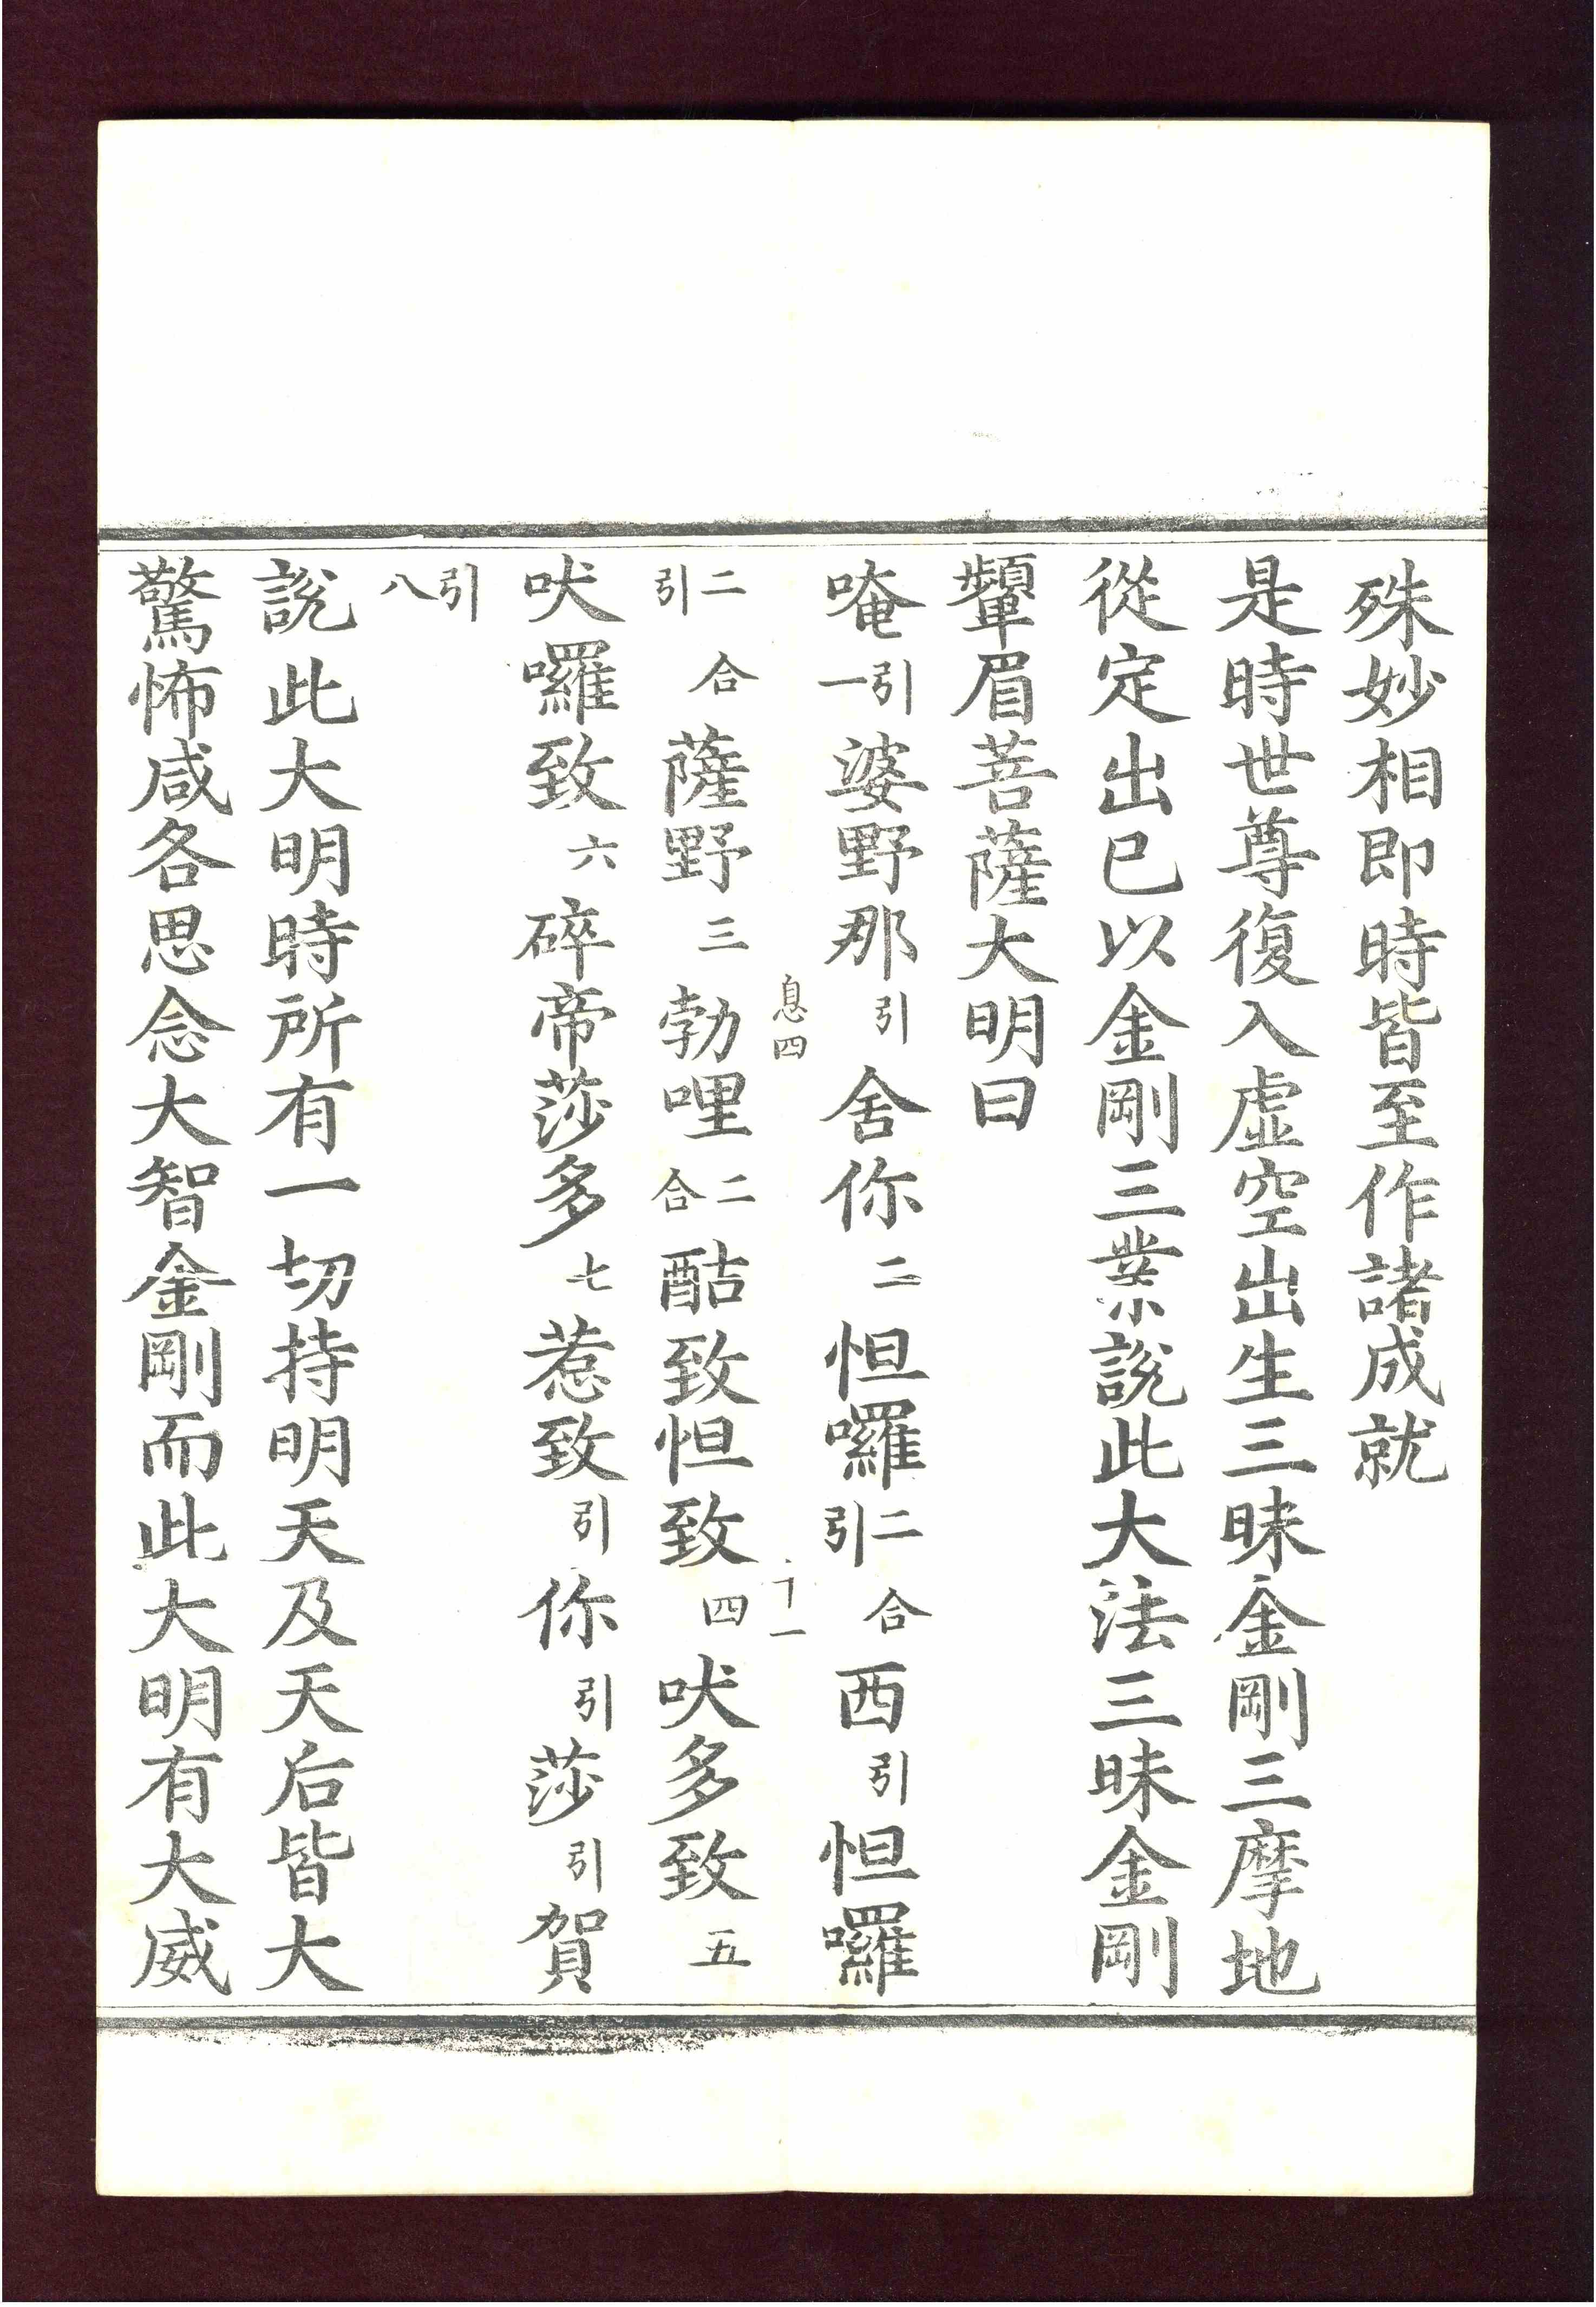 殊妙相即時皆至作諸成就
是時世尊復入虛空出生三昧金剛三摩地
從定出已以金剛三業說此大法三昧金剛
顰眉菩薩大明曰
唵引一婆野那引舍你二怛囉二合引西引怛囉
息四 十一
二合引薩野三勃哩二合酤致怛致四吠多致五
吠囉致六碎帝莎多七惹致引你引莎引賀
引八
說此大明時所有一切持明天及天后皆大
驚怖咸各思念大智金剛而此大明有大威